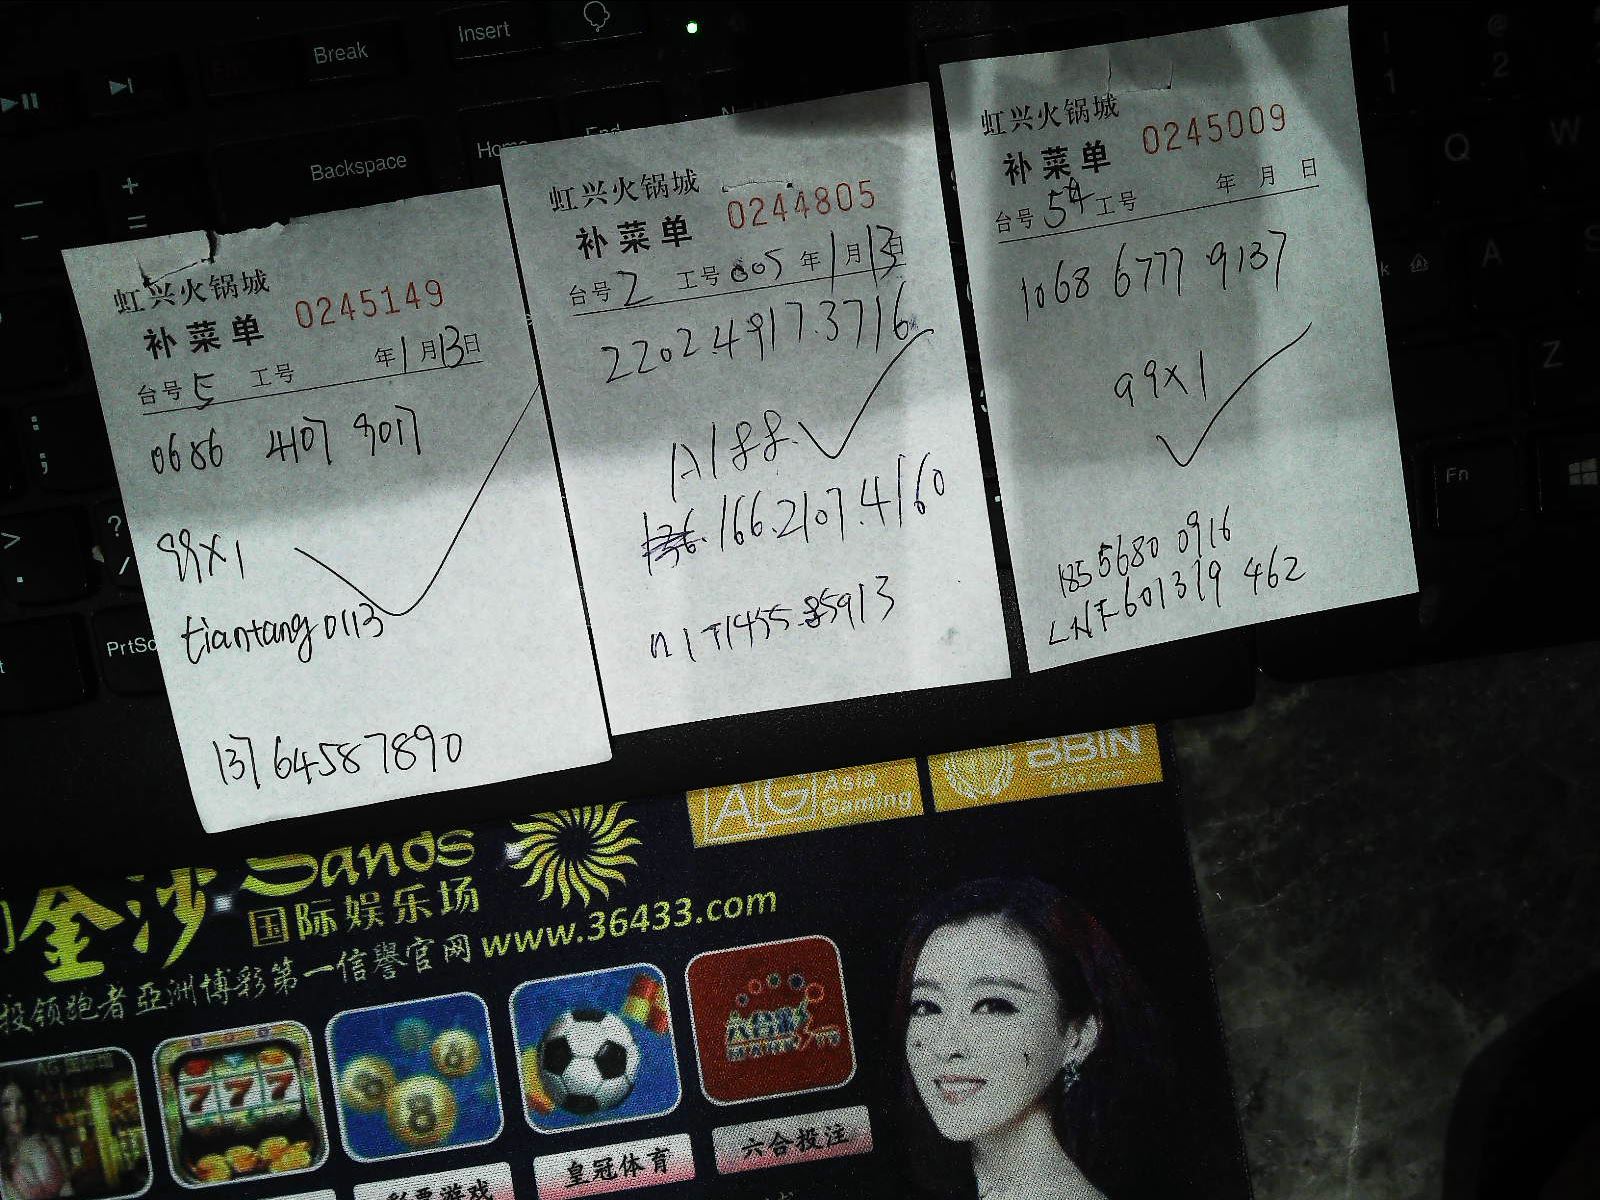 Insert
Break
Backspace
Home
End
PrtSc
Fn
Q
W
A
S
Z
虹兴火锅城
补菜单 0245149
台号 5 工号 年 1 月 13 日
0686 4107 9017
99X1
tiantang0113
13764587890
虹兴火锅城
补菜单 0244805
台号 2 工号 005 年 1 月 13 日
2202.4917.3716
166.2107.4160
虹兴火锅城
补菜单 0245009
台号 54 工号 年 月 日
1068 6777 9137
99X1
185 5680 0916
LHF601319 462
AG Asia Gaming
BBIN
金沙 Sands
国际娱乐场
www.36433.com
投领跑者亞洲博彩第一信譽官网
777
彩票游戏
皇冠体育
六合投注